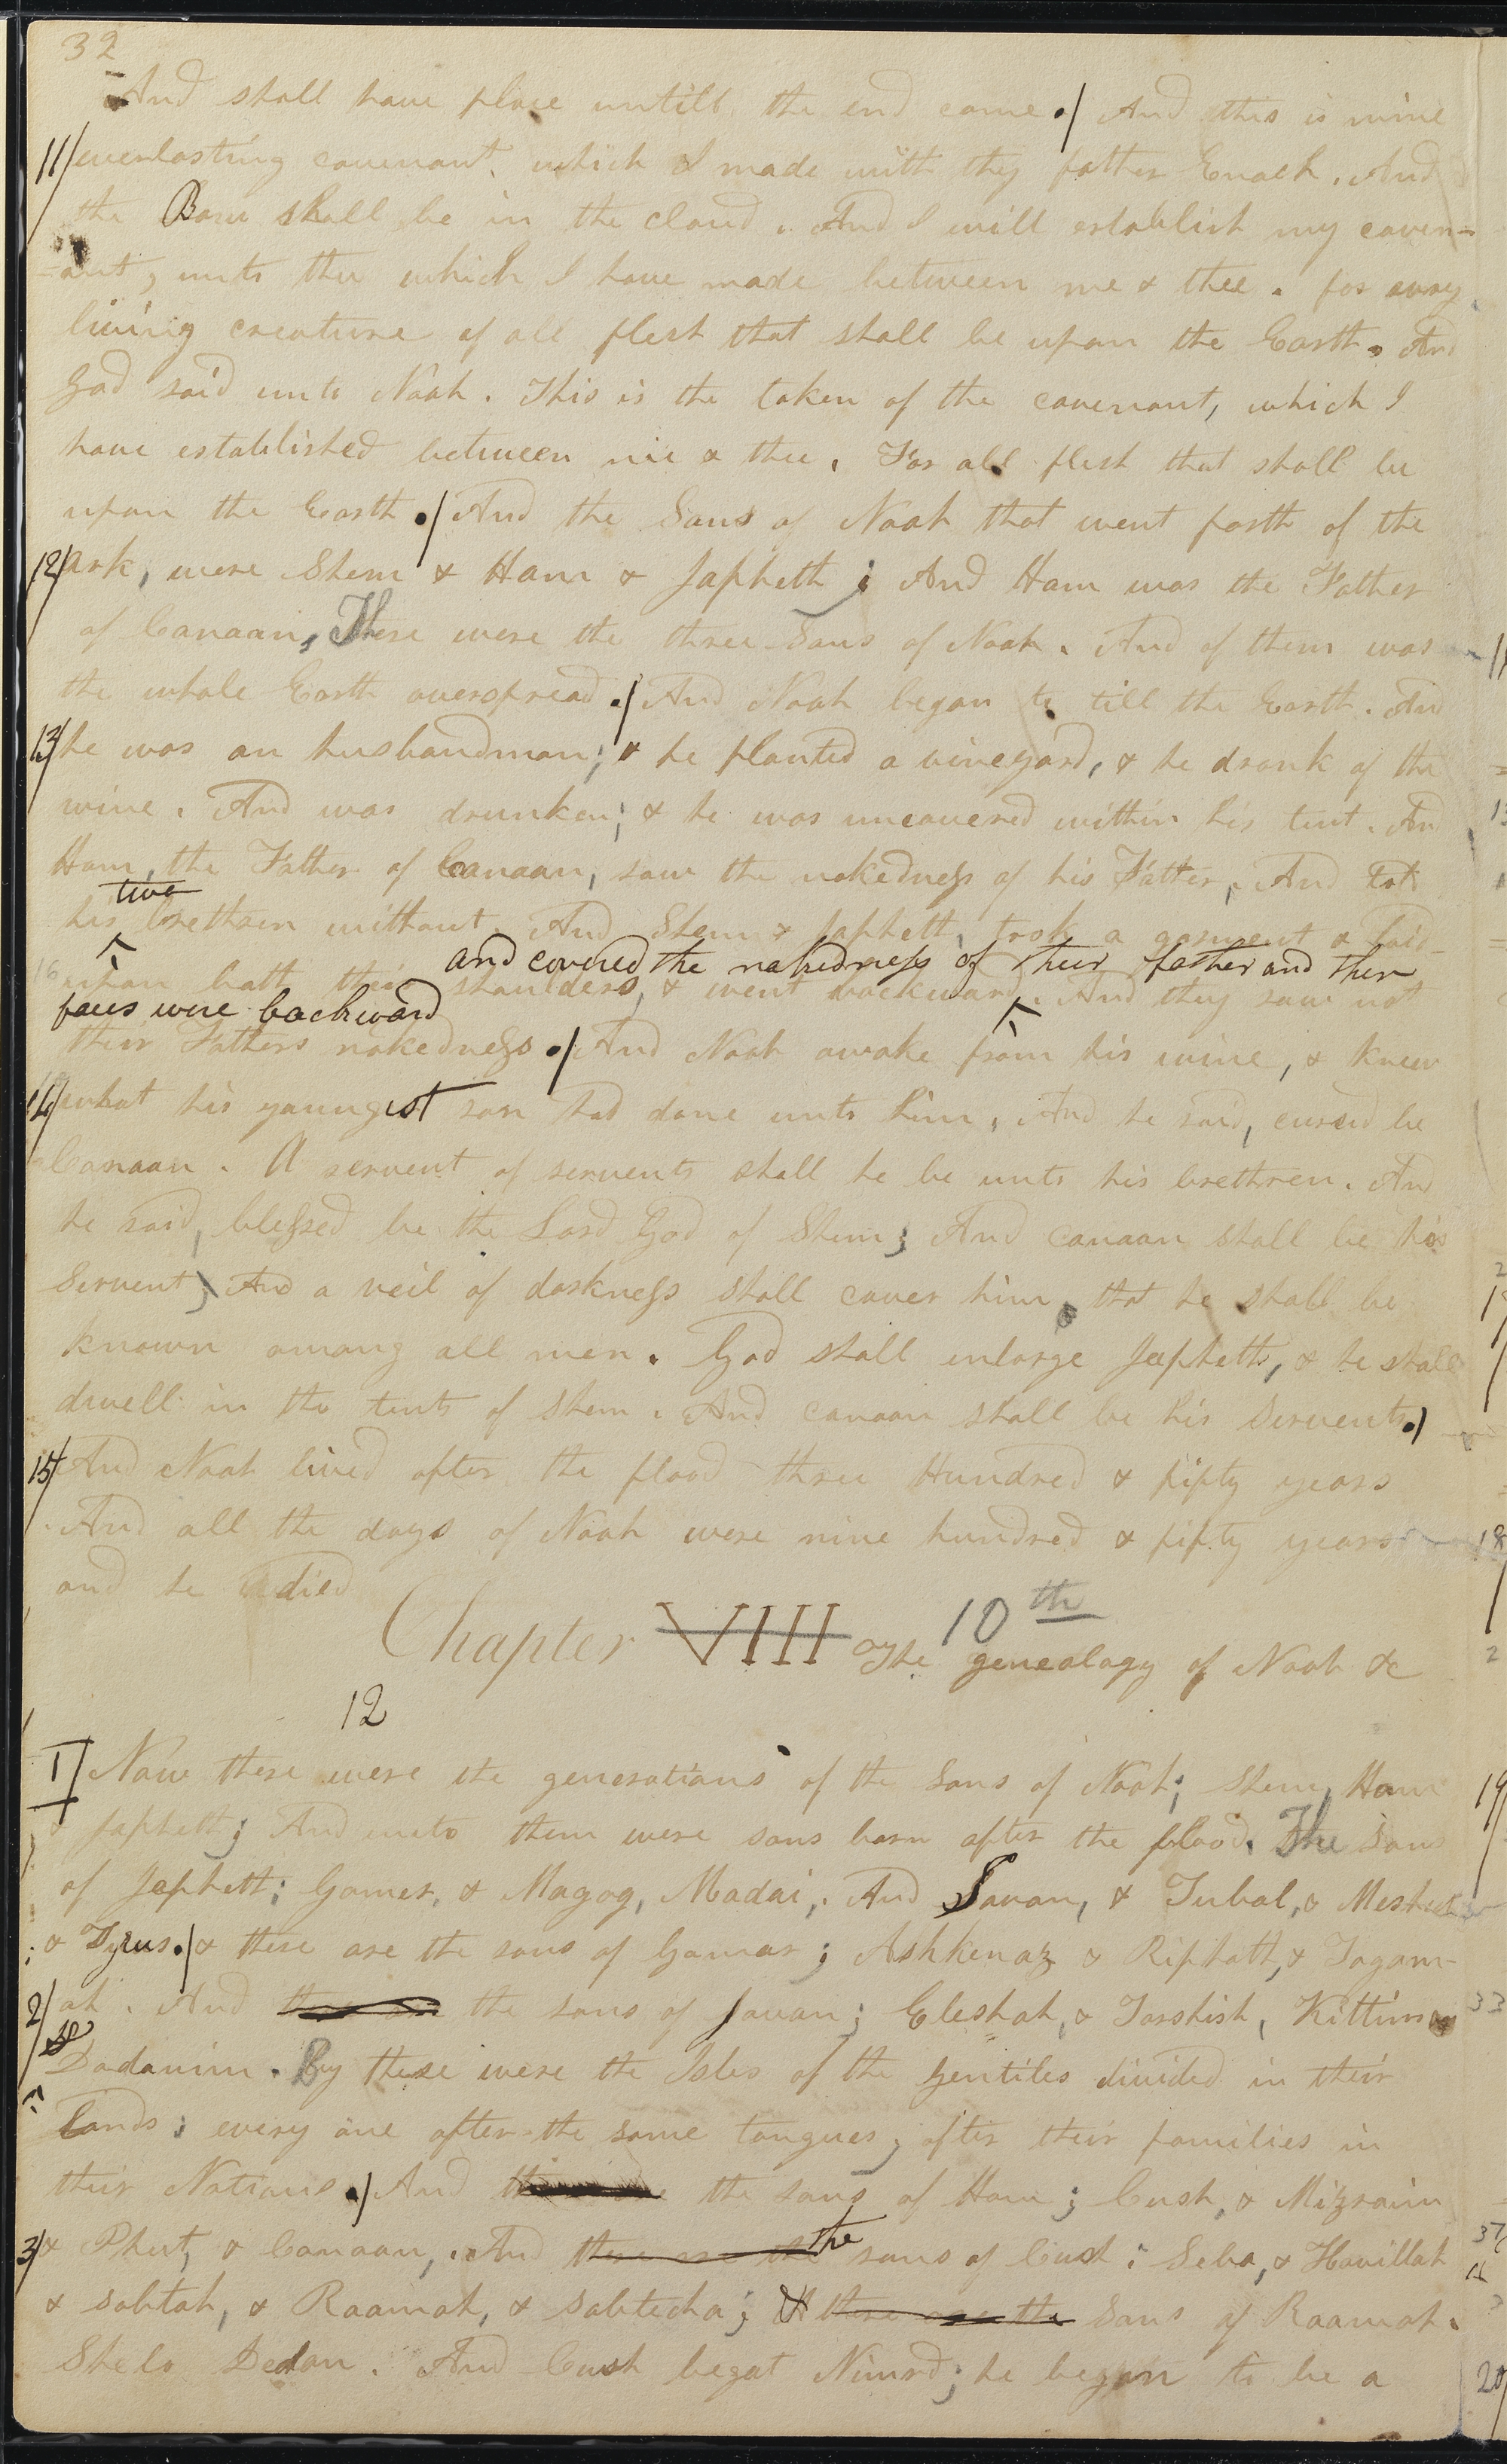 32
And shall have place untill the end come ./ And this is mine
11/ everlasting covenant, which I made with thy father Enoch. And
the Bow shall be in the cloud. And I will establish my coven-
-ant, unto thee which I have made between me & thee. for every
living creature of all flesh that shall be upon the Earth. And
God said unto Noah. This is the token of the covenant, which I
have established between me & thee. For all flesh that shall be
upon the Earth ./ And the Sons of Noah that went forth of the
12/ Ark, were Shem & Ham & Japheth; And Ham was the Father
of Canaan, These were the three Sons of Noah. And of them was
the whole Earth overspread ./ And Noah began to till the Earth. And
13/ he was an husbandman; & he planted a vineyard, & he drank of the
wine. And was drunken; & he was uncovered within his tent. And
Ham, the Father of Canaan, saw the nakedness of his Father, And told
two
his brethren without. And Shem & Japheth, took a garment & laid
and covered the nakedness of their father and their
16 upon both their shoulders, & went backward. And they saw not
faces were backward
their Fathers nakedness ./ And Noah awoke from his wine, & knew
14/ what his youngest son had done unto him, And he said, cursed be
Canaan. A servent of servents shall he be unto his brethren. And
he said, blessed be the Lord God of Shem; And canaan shall be his
Servent, And a veil of darkness shall cover him, that he shall be
known among all men. God shall enlarge Japheth, & he shall
dwell in the tents of Shem. And canaan shall be his Servents ./
15/ And Noah lived after the flood three Hundred & fifty years
. And all the days of Noah were nine hundred & fifty years
and he died
Chapter VIII 10th The genealogy of Noah &c
12
1/ Now these were the generations of the Sons of Noah; Shem, Ham
& Japheth; And unto them were sons born after the flood. The Sons
of Japheth; Gomer, & Magog, Madai, And Javan, & Tubal, & Meshech
; & Tyrus ./ & these are the sons of Gomar; Ashkenaz & Riphath, & Togarm-
2/ ah. And these are the sons of Javan; Eleshah, & Tarshish, Kittim &
Dodanim. By these were the Isles of the Gentiles divided in their
Lands; every one after the same tongues, after their families in
their Nations ./ And these are the sons of Ham; Cush, & Mizraim
3/ & Phut, & Canaan, And these are the the sons of Cush; Seba, & Havillah
& sabtah, & Raamah, & sabtecha; & these are the Sons of Raamah.
Sheba Dedan. And Cush begat Nimrd; he began to be a